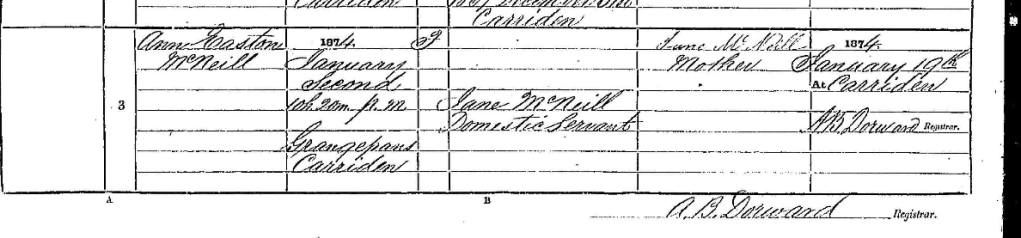 Carriden 1867 December 31st
Carriden
Ann Easton 1874. F Jane McNeill 1874.
McNeill January Mother January 19th
Second At Carriden
3 10h 20m P.M. Jane McNeill
Domestic Servant A B Dorward Registrar.
Grangepans
Carriden
A B
A. B. Dorward Registrar.